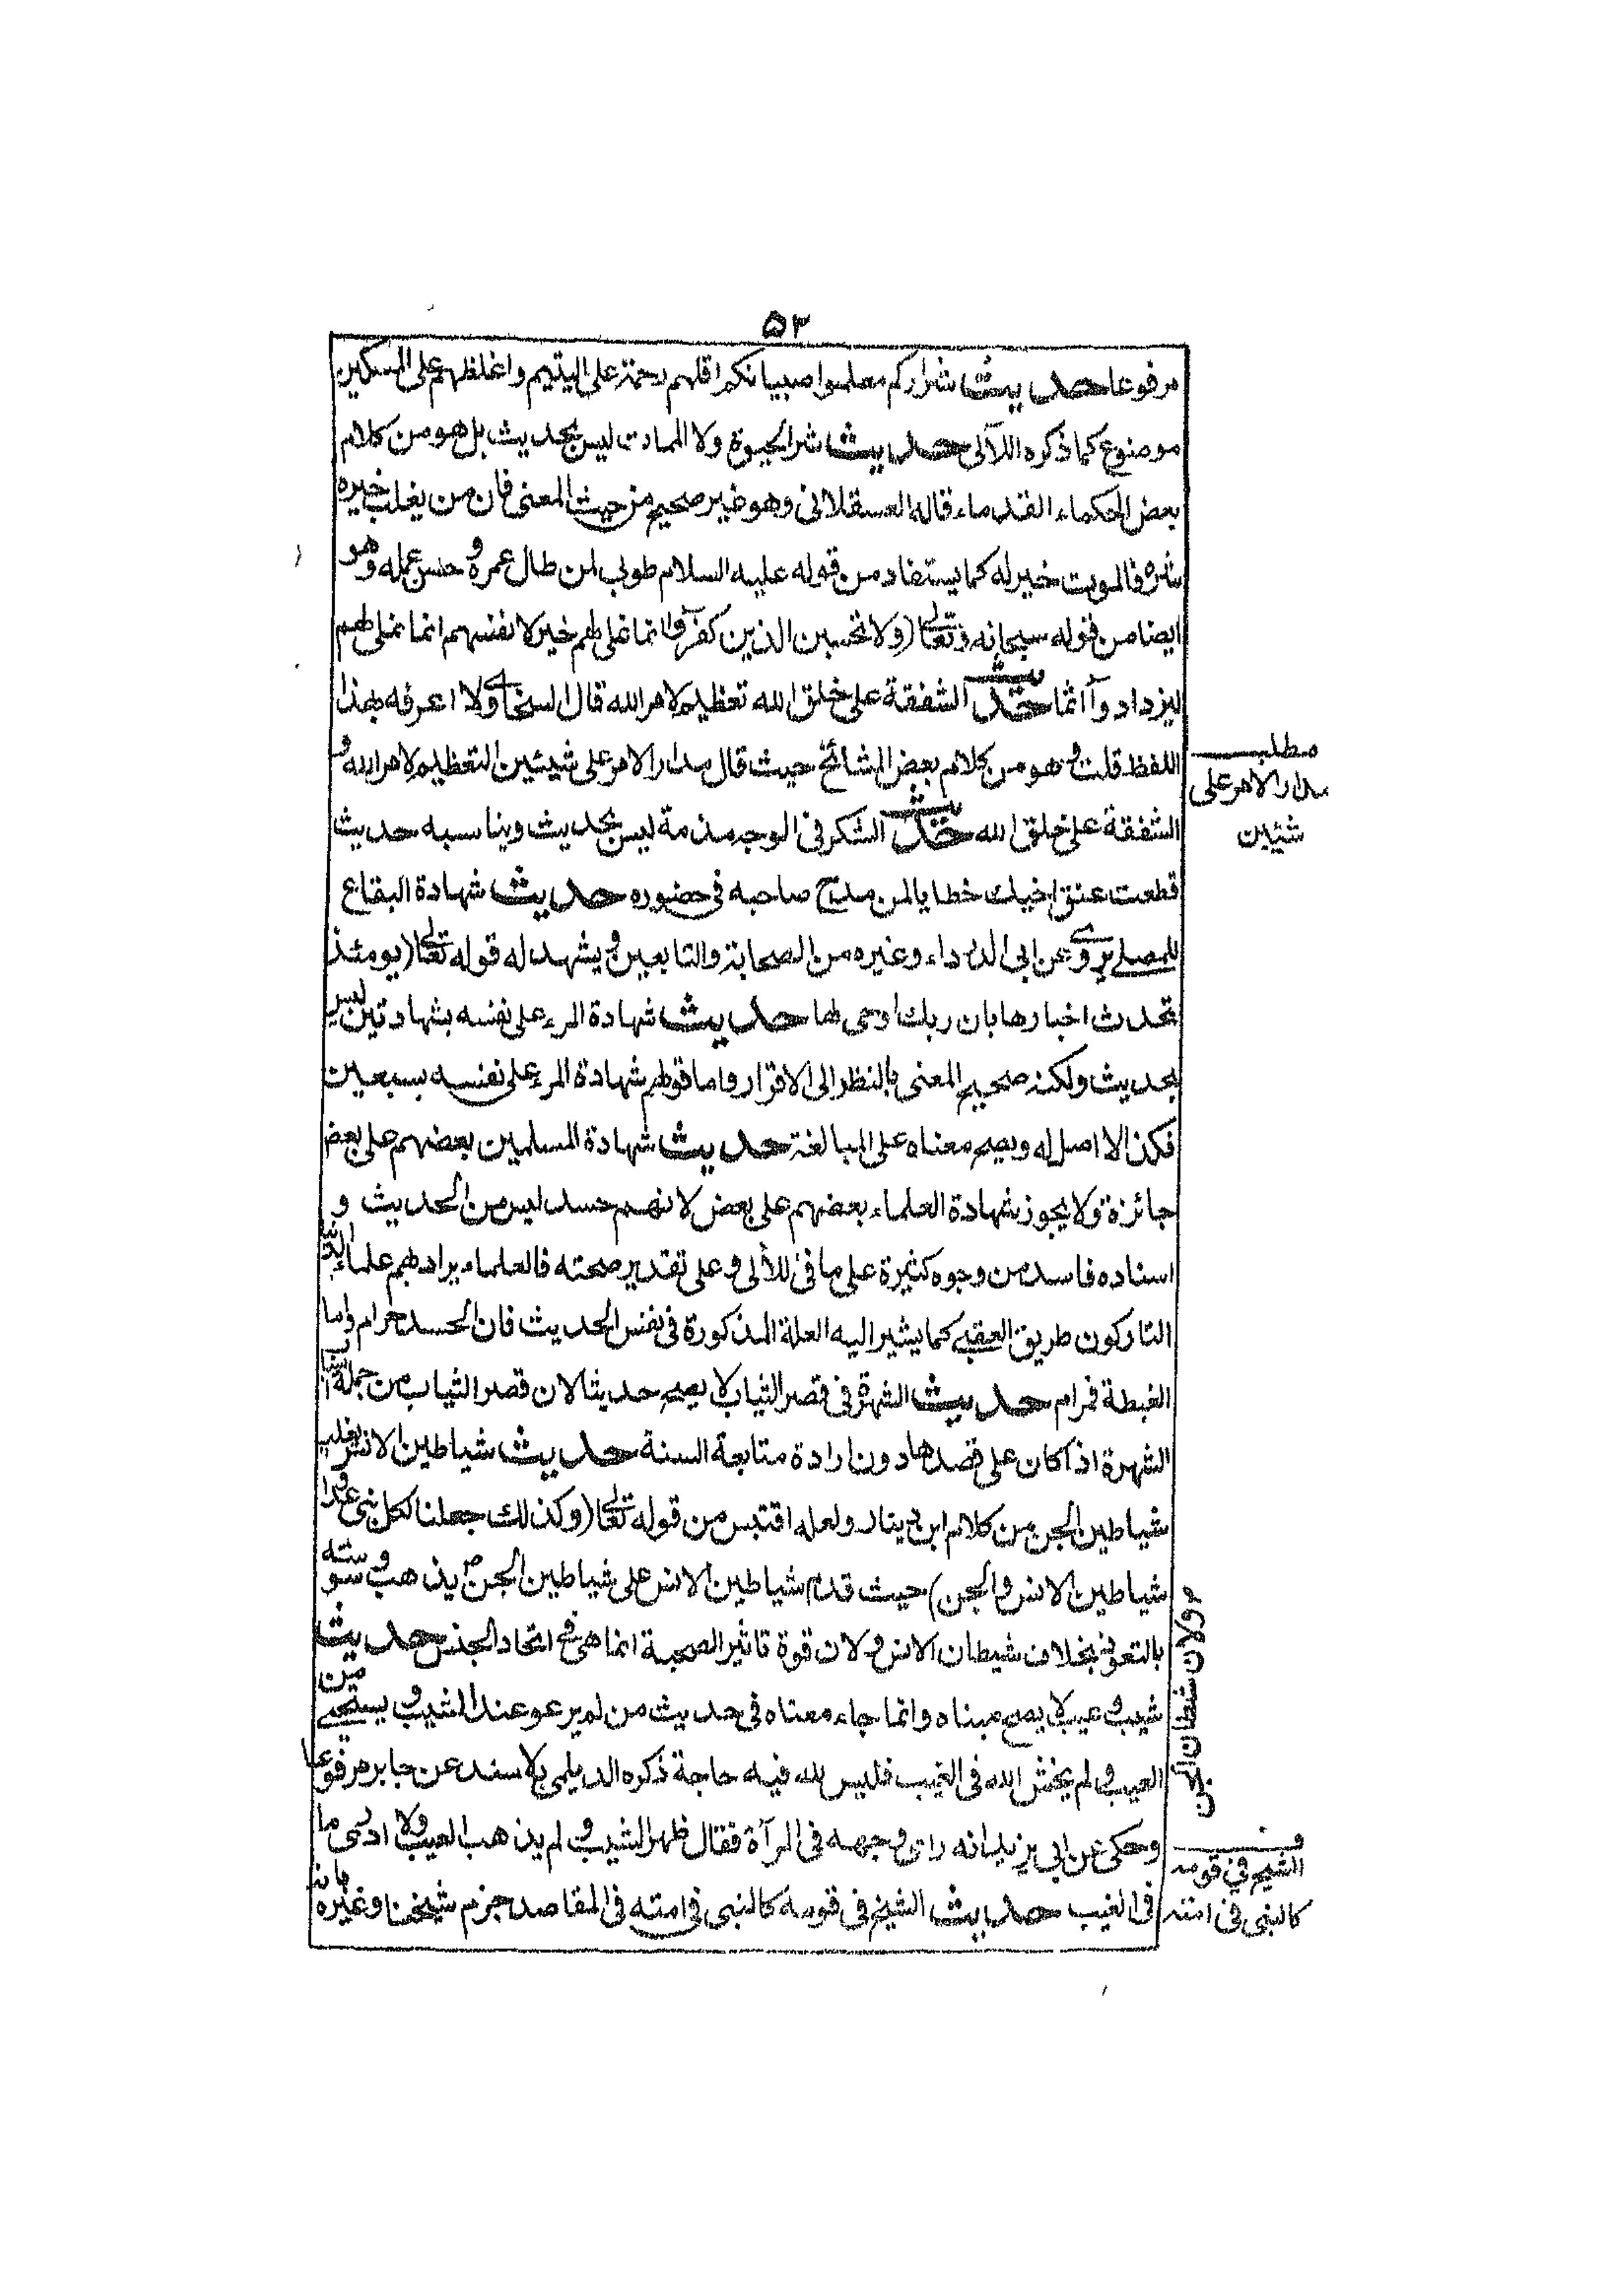 ٥٣
مرفوعا حديث شراركم معلموا صبيانكم اقلهم رحمة على اليتيم واغلظهم على المسكين
موضوع كما ذكره اللآلى حديث شر الحيوة ولا الممات ليس بحديث بل هو من كلام
بعض الحكماء القدماء قاله العسقلانى وهو غير صحيح من حيث المعنى فان من يغلب خيره
شره فالموت خير له كما يستفاد من قوله عليه السلام طوبى لمن طال عمره وحسن عمله وهو
ايضا من قوله سبحانه وتعالى (ولا تحسبن الذين كفروا انما نملى لهم خير لانفسهم انما نملى لهم
ليزدادوآ اثما حديث الشفقة على خلق الله تعظيم لامر الله قال السخاوى ولا اعرفه بهذا
اللفظ قلت وهو من كلام بعض المشائخ حيث قال مدار الامر على شيئين التعظيم لامر الله و
الشفقة على خلق الله حديث الشكر فى الوجه مذمة ليس بحديث ويناسبه حديث
قطعت عنق اخيك خطابا لمن مدح صاحبه فى حضوره حديث شهادة البقاع
للمصلى يروى عن ابى الدرداء وغيره من الصحابة والتابعين ويشهد له قوله تعالى (يومئذ
تحدث اخبارها بان ربك اوحى لها حديث شهادة المرء على نفسه بشهادتين ليس
بحديث ولكنه صحيح المعنى بالنظر الى الاقرار واما قولهم شهادة المرء على نفسه بسبعين
فكذا لا اصل له ويصح معناه على المبالغة حديث شهادة المسلمين بعضهم على بعض
جائزة ولا يجوز شهادة العلماء بعضهم على بعض لانهم حسد ليس من الحديث و
اسناده فاسد من وجوه كثيرة على ما فى اللآلى وعلى تقدير صحته فالعلماء يراد بهم علماء الدنيا
التاركون طريق العقبى كما يشير اليه العلة المذكورة فى نفس الحديث فان الحسد حرام واما
الغبطة فمرام حديث الشهرة فى قصر الثياب لا يصح حديثا لان قصر الثياب من جملة اسباب
الشهرة اذا كان على قصدها دون ارادة متابعة السنة حديث شياطين الانس يغلب
شياطين الجن من كلام ابن دينار ولعله اقتبس من قوله تعالى (وكذلك جعلنا لكل نبى عدوا
شياطين الانس والجن) حيث قدم شياطين الانس على شياطين الجن يذهب وسوسته
بالتعوذ بخلاف شيطان الانس ولان قوة تاثير الصحبة انما هى مع اتحاد الجنس حديث
شيب وعيب لا يصح مبناه وانما جاء معناه فى حديث من لم يرعو عند الشيب ويستحيى من
العيب ولم يخش الله فى الغيب فليس لله فيه حاجة ذكره الديلمى بلا سند عن جابر مرفوعا
وحكى عن ابى يزيد انه راى وجهه فى المرآة فقال ظهر الشيب ولم يذهب العيب ولا ادرى ما
فى الغيب حديث الشيخ فى قومه كالنبى فى امته فى المقاصد جزم شيخنا وغيره بانه
مطلب
مدار الامر على
شيئين
ولان شيطان الجن
الشيخ في قومه
كالنبى فى امته